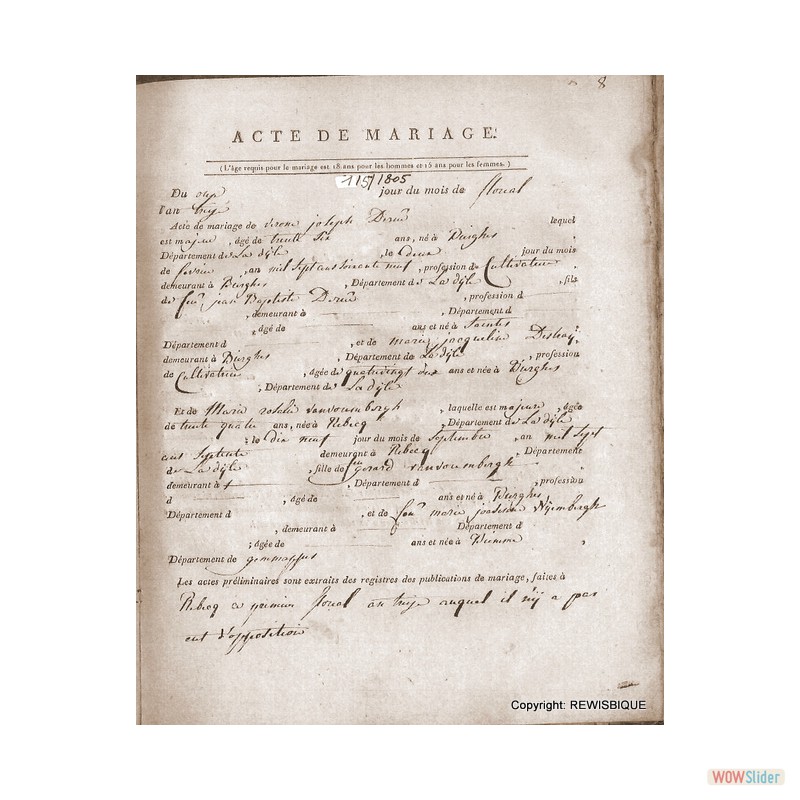 8
ACTE DE MARIAGE.
(L'âge requis pour le mariage est 18 ans pour les hommes et 15 ans pour les femmes.)
1/5/1805
Du onze jour du mois de floreal
l'an treize
Acte de mariage de joseph lequel
est majeur, âgé de trente six ans, né à Bierghes,
Département de La dÿle, le deux jour du mois
de fevrier, an mil sept cens soixante neuf, profession de Cultivateur,
demeurant à Bierghes, Département de La dÿle, fils
de feu jean Baptiste, profession d
, demeurant à, Département d
, âgé de ans et né à Saintes
Département d, et de marie jacqueline
demeurant à Bierghes, Département de La dÿle, profession
de Cultivateur, âgée de quatrevingt deux ans et née à Bierghes
; Département de La dÿle
Et de Marie rosalie vanvoumbergh, laquelle est majeure, âgée
de trente quatre ans, née à Rebecq, Département de La dÿle
; le dix neuf jour du mois de Septembre, an mil sept
cens Septante demeurant à Rebecq, Département
de La dÿle, fille de feu gerard vanvoumbergh
demeurant à, Département d, profession
d, âgé de ans et né à Bierghes
Département d, et de feu marie
, demeurant à Département d
; âgée de ans et née à
Département de gemmappes
Les actes préliminaires sont extraits des registres des publications de mariage, faites à
Rebecq ce premier floreal an treize auquel il n'ÿ a pas
eut d'opposition
Copyright: REWISBIQUE
WOWSlider